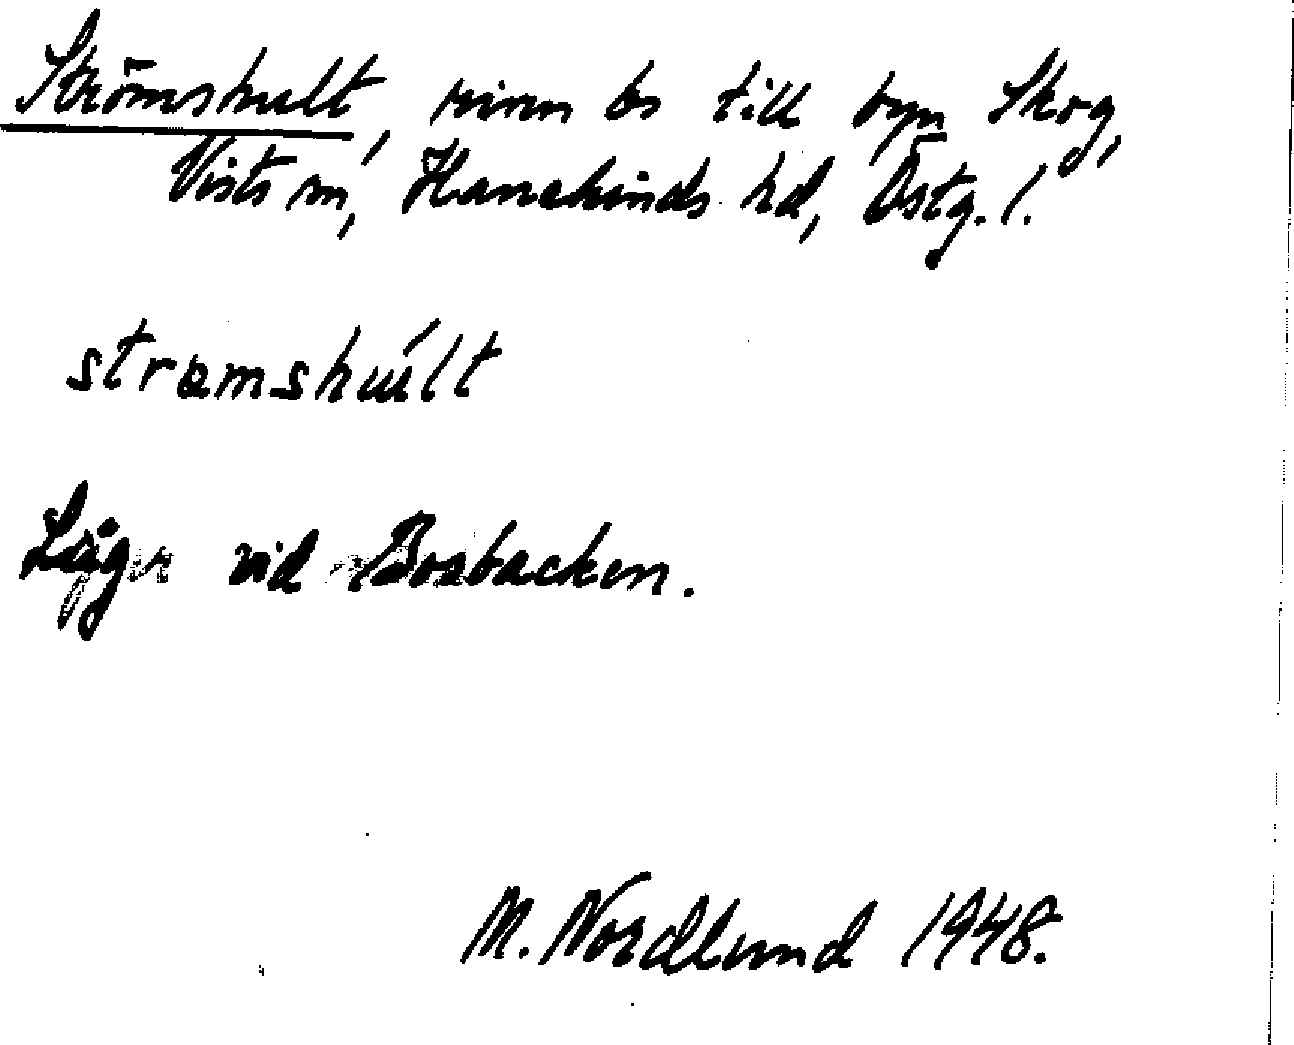 Strömshult, riven bs till byn Skog,
Vists sn, Hanekinds hd, Östg. l.
strømshúlt
Läger vid Boabacken.
M. Nordlund 1948.